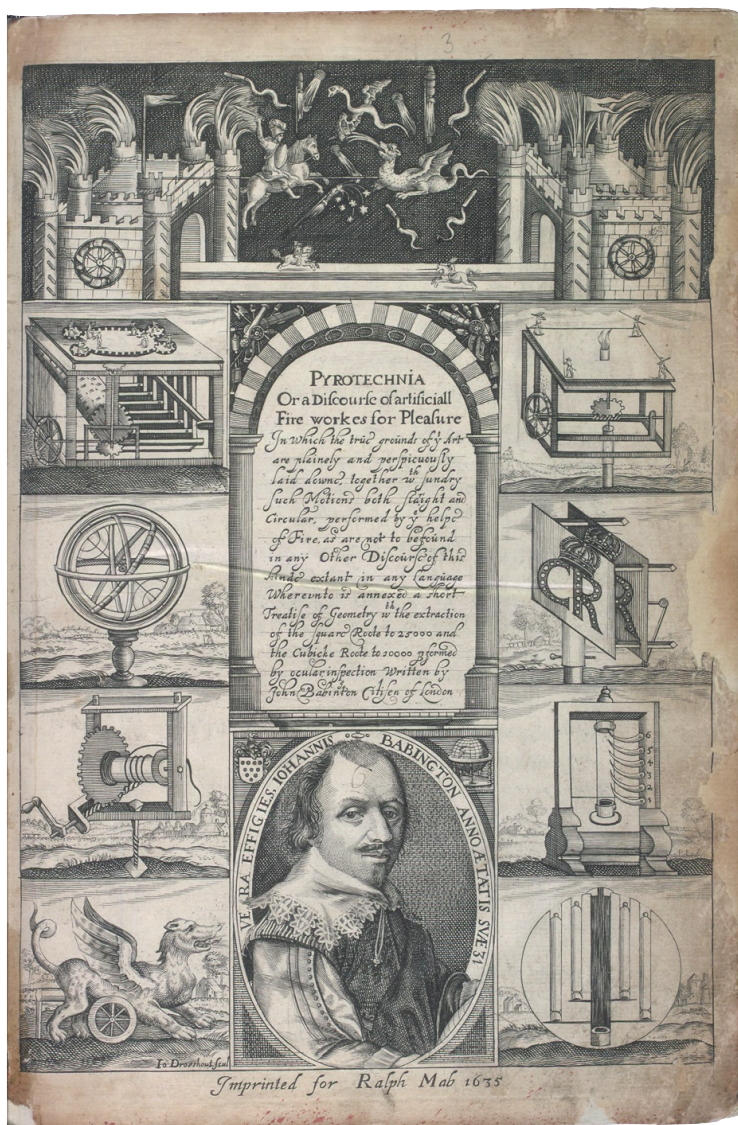 3
PYROTECHNIA
Or a Discourse of artificiall
Fire workes for Pleasure
In Which the true grounds of yͤ Art
are plainely and perspicuously
laid downe, together wᵗʰ sundry
such Motions both straight and
Circular, performed by yͤ helpe
of Fire, as are not to be found
in any Other Discourse of this
kinde extant in any Language
Wherevnto is annexed a short
Treatise of Geometry wᵗʰ the extraction
of the square Roote to 25000 and
the Cubicke Roote to 10000 formed
by ocular inspection Written by
John Babington Citisen of London
CR
R
6
5
4
3
2
1
VERA EFFIGIES, IOHANNIS BABINGTON ANNO ÆTATIS SVÆ 31
6
Io: Droeshout, scul
Imprinted for Ralph Mab 1635